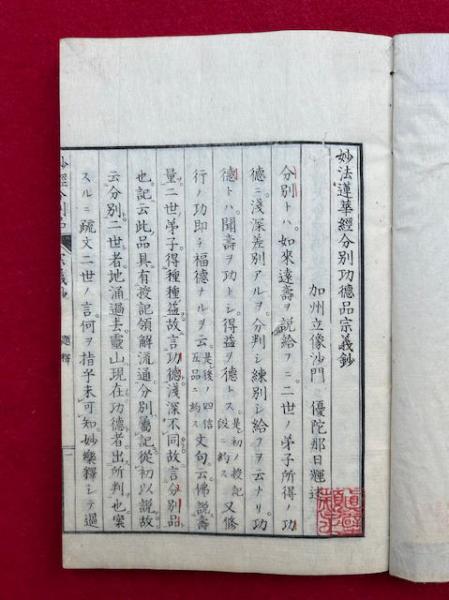 妙法蓮華經分別功德品宗義鈔
加州立像沙門 優陀那日輝述
分別トハ。如來遠壽ヲ說給フニ。二世ノ弟子所得ノ功
德ニ淺深差別アルヲ。分判シ練別シ給フヲ云ナリ。功
德トハ。聞壽ヲ功トシ。得益ヲ德トス 是初ノ授記段ニ約ス 又修
行ノ功即チ福德ナルヲ云 是後ノ四信五品ニ約ス 文句云佛說壽
量二世弟子得種種益故言功德淺深不同故言分別品
也記云此品具有授記領解流通分別屬記從初以說故
云分別二世者地涌過去靈山現在功德者出所判也案
スルニ疏文二世ノ言何ヲ指乎未可知妙樂釋シテ過